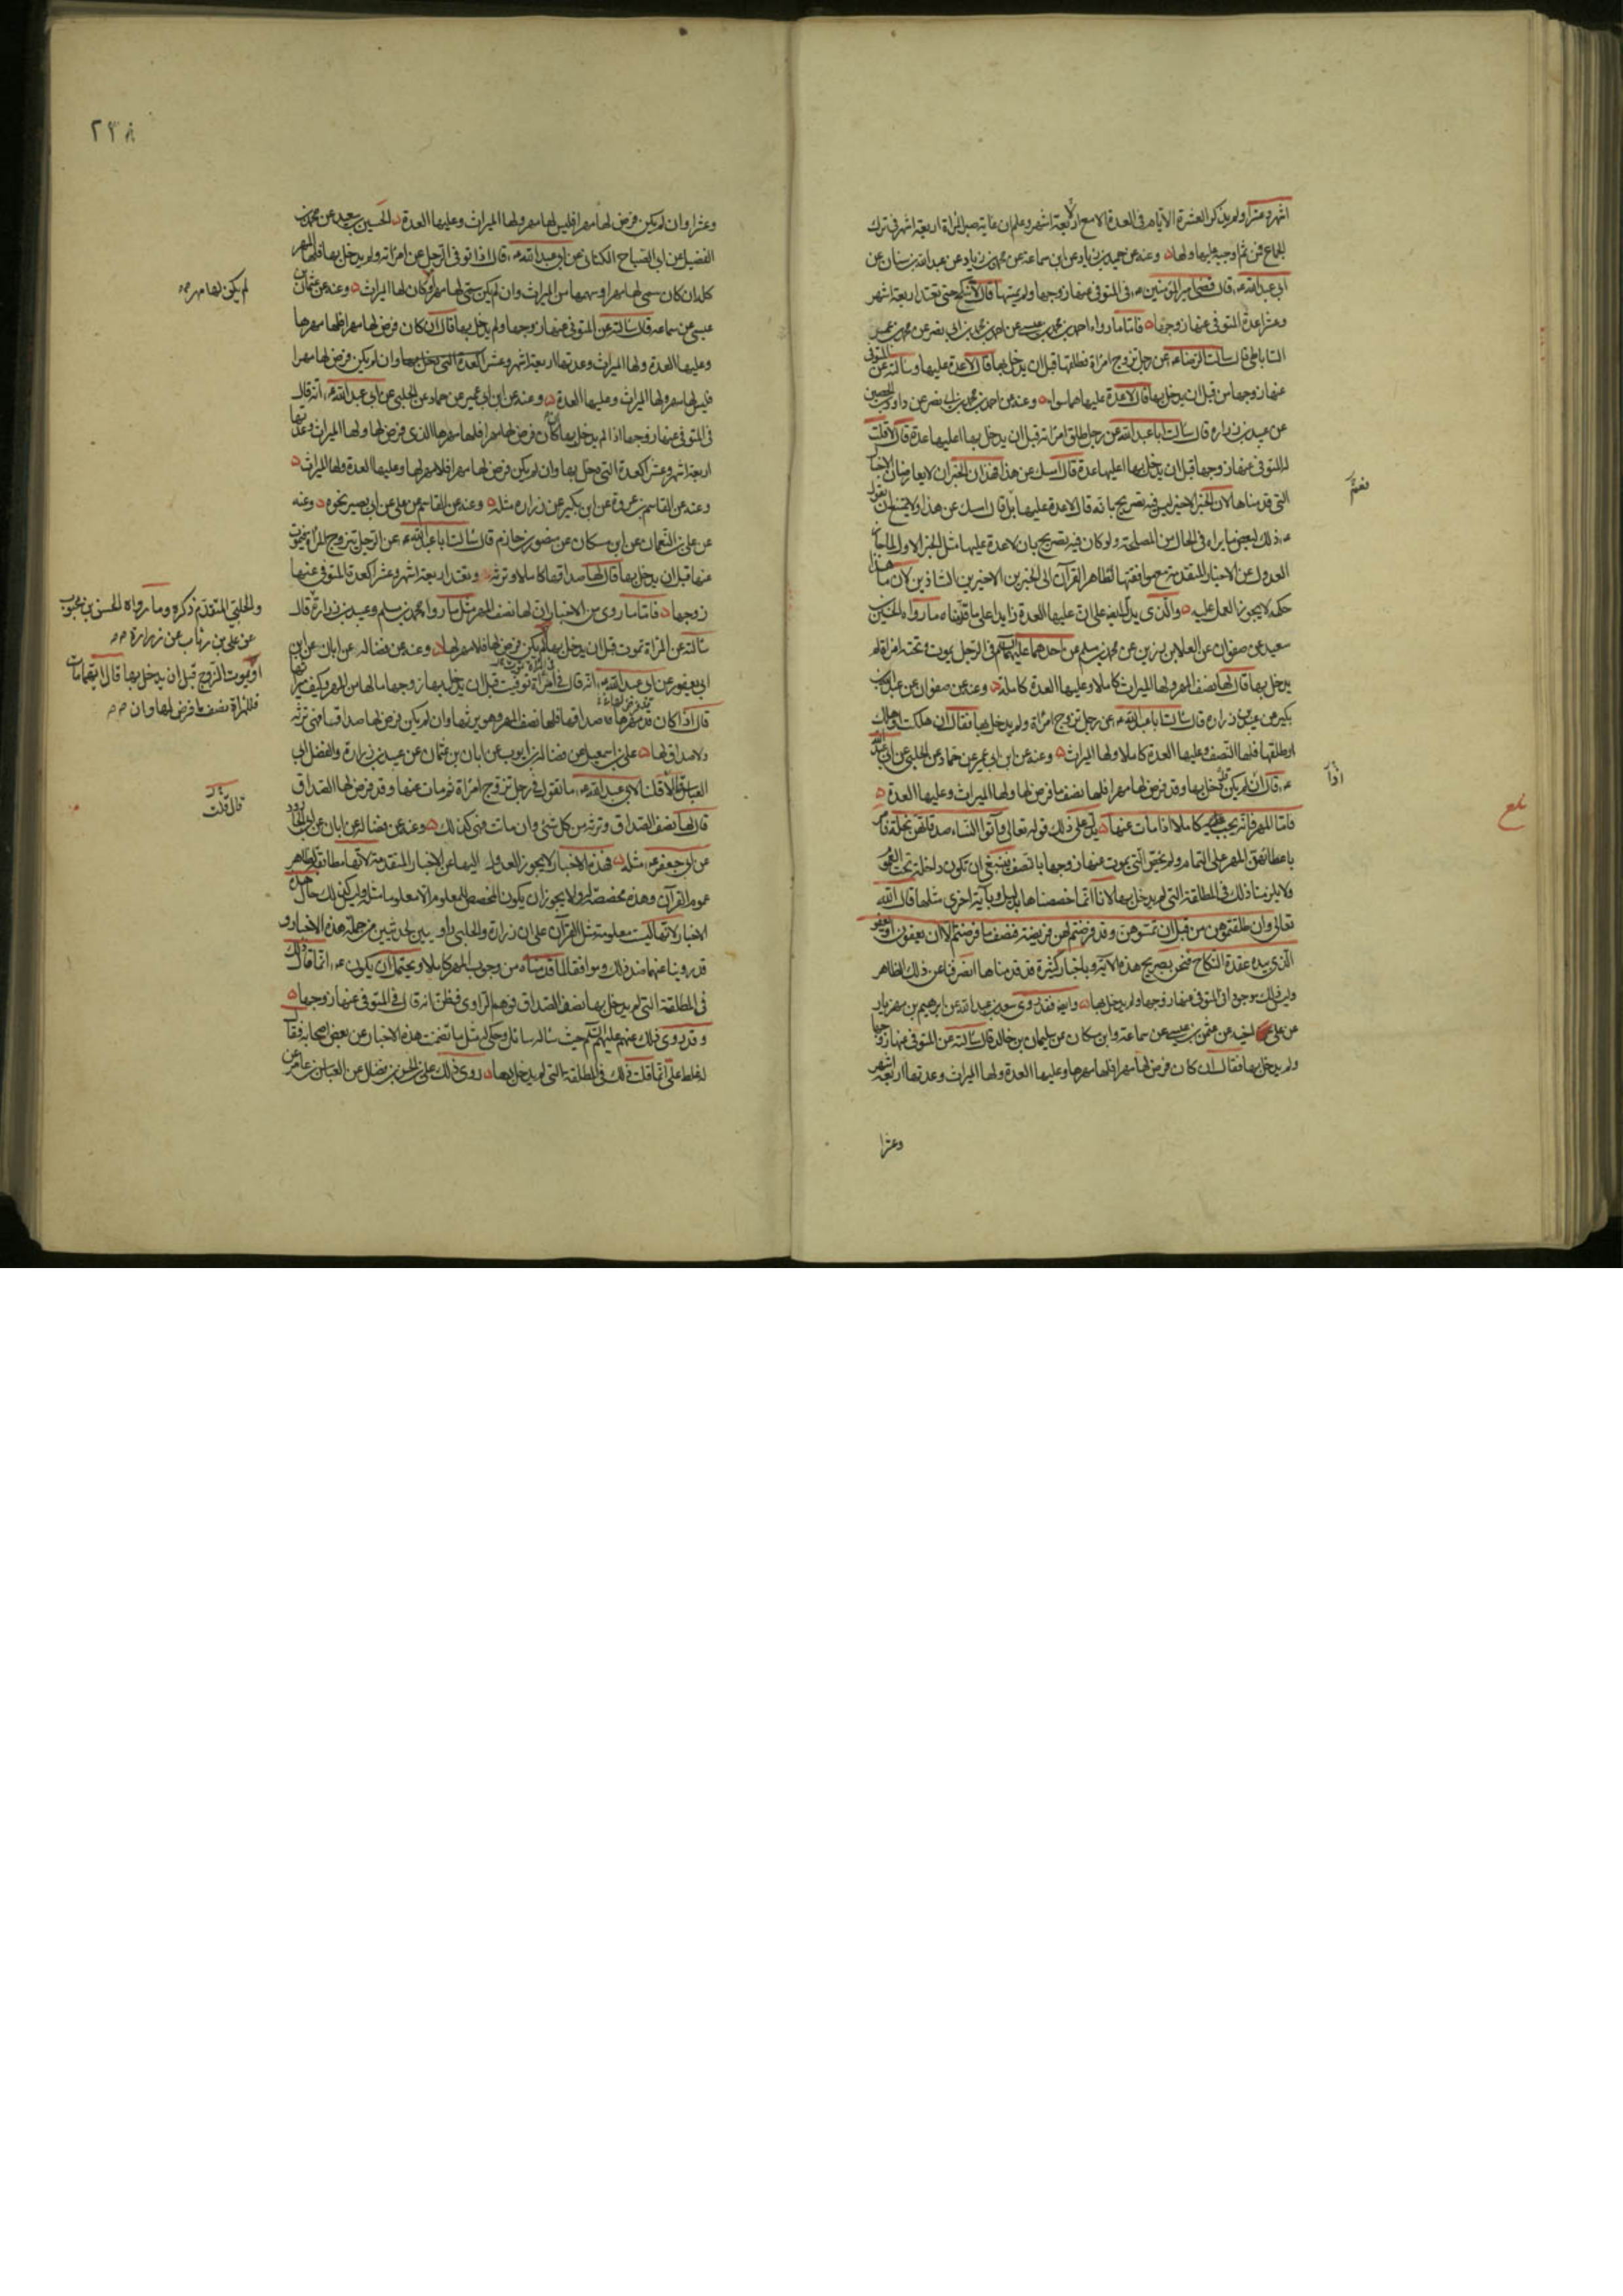 اشهر وعشرا ولم يذكر العشرة الايام في العدة الا مع الاربعة اشهر وعلم ان غاية صبر المراة اربعة اشهر في ترك
الجماع فمن ثم اوجبه عليها ولها وعنه عن حميد بن زياد عن ابن سماعة عن محمد بن زياد عن عبد الله بن سنان عن
ابي عبد الله ع قال قضى امير المؤمنين ع في المتوفى عنها زوجها ولم يمسها قال لا تنكح حتى تعتد اربعة اشهر
وعشرا عدة المتوفى عنها زوجها فاما ما رواه احمد بن محمد بن عيسى عن احمد بن محمد بن ابي نصر عن محمد بن عمر
الساباطي قال سالت الرضا ع عن رجل تزوج امراة فطلقها قبل ان يدخل بها قال لا عدة عليها وسالته عن المتوفى
عنها زوجها من قبل ان يدخل بها قال لا عدة عليها هما سواء وعنه عن احمد بن محمد بن ابي نصر عن داود بن الحصين
عن عبيد بن زرارة قال سالت ابا عبد الله عن رجل طلق امراته قبل ان يدخل بها اعليها عدة قال لا قلت
له المتوفى عنها زوجها قبل ان يدخل بها اعليها عدة قال امسك عن هذا فهذان الخبران لا يعارضان الاخبار
التي قدمناها لان الخبر الاخير ليس فيه تصريح بانه قال لا عدة عليها بل قال امسك عن هذا ولا يمتنع ان يقول
ع ذلك لبعض ما يراه في الحال من المصلحة ولو كان فيه تصريح بان لا عدة عليها مثل الخبر الاول لما جاز
العدول عن الاخبار المتقدمة مع موافقتها لظاهر القران الى الخبرين الاخيرين الشاذين لان ما هذا
حكمه لا يجوز العمل عليه والذي يدل ايضا على ان عليها العدة زايدا على ما قدمناه ما رواه الحسين بن
سعيد عن صفوان عن العلا بن رزين عن محمد بن مسلم عن احدهما عليهما السلم في الرجل يموت وتحته امراة لم
يدخل بها قال لها نصف المهر ولها الميراث كاملا وعليها العدة كاملة وعنه عن صفوان عن عبد الله بن
بكير عن عبيد بن زرارة قال سالت ابا عبد الله ع عن رجل تزوج امراة ولم يدخل بها فقال ان هلكت او هلك
او طلقها فلها النصف وعليها العدة كاملا ولها الميراث وعنه عن ابن ابي عمير عن حماد عن الحلبي عن ابي عبد الله
ع قال ان لم يكن قد دخل بها وقد فرض لها مهرا فلها نصف ما فرض لها ولها الميراث وعليها العدة
فاما المهر فانه يجب عليه كاملا اذا مات عنها يدل على ذلك قوله تعالى وآتوا النساء صدقاتهن نحلة فامر
باعطائهن المهر على التمام ولم يخص التي يموت عنها زوجها بالنصف فينبغي ان تكون داخلة تحت العموم
فلا يلزمنا ذلك في المطلقة التي لم يدخل بها لانا انما خصصناها بدليل وبآية اخرى مثلها قال الله
تعالى وان طلقتموهن من قبل ان تمسوهن وقد فرضتم لهن فريضة فنصف ما فرضتم الا ان يعفون او يعفو
الذي بيده عقدة النكاح فنحن بصريح هذه الآية وباخبار كثيرة قد قدمناها انصرفنا عن ذلك الظاهر
وليس ذلك بموجود في المتوفى عنها زوجها ولم يدخل بها وايضا فقد روى سعد بن عبد الله عن ابرهيم بن مهزيار
عن علي اخيه عن عثمن بن عيسى عن سماعة وابن مسكان عن سليمان بن خالد قال سالته عن المتوفى عنها زوجها
ولم يدخل بها فقال ان كان فرض لها مهرا فلها مهرها وعليها العدة ولها الميراث وعدتها اربعة اشهر
وعشرا
نعم
اذا
بلغ
٢٣٨
وعشرا وان لم يكن فرض لها مهرا فليس لها مهر ولها الميراث وعليها العدة الحسين بن سعيد عن محمد بن
الفضيل عن ابي الصباح الكناني عن ابي عبد الله ع قال اذا توفى الرجل عن امراته ولم يدخل بها فلها المهر
كله ان كان سمى لها مهرا وسهمها من الميراث وان لم يكن سمى لها مهرا وكان لها الميراث وعنه عن عثمان بن
عيسى عن سماعة قال سالته عن المتوفى عنها زوجها ولم يدخل بها قال ان كان فرض لها مهرا فلها مهرها
وعليها العدة ولها الميراث وعدتها اربعة اشهر وعشرا كعدة التي دخل بها وان لم يكن فرض لها مهرا
فليس لها مهر ولها الميراث وعليها العدة وعنه عن ابن ابي عمير عن حماد عن الحلبي عن ابي عبد الله ع انه قال
في المتوفى عنها زوجها اذا لم يدخل بها ان كان فرض لها مهرا فلها مهرها الذي فرض لها ولها الميراث وعدتها
اربعة اشهر وعشرا كعدة التي دخل بها وان لم يكن فرض لها مهرا فلا مهر لها وعليها العدة ولها الميراث
وعنه عن القاسم بن عروة عن ابن بكير عن زرارة مثله وعنه عن القاسم عن علي عن ابي بصير نحوه وعنه
عن علي بن النعمان عن ابن مسكان عن منصور بن حازم قال سالت ابا عبد الله ع عن الرجل يتزوج المراة فيموت
عنها قبل ان يدخل بها قال لها صداقها كاملا وترثه وتعتد اربعة اشهر وعشرا كعدة المتوفى عنها
زوجها فاما ما روى من الاخبار ان لها نصف المهر مثل ما رواه محمد بن مسلم وعبيد بن زرارة قال
سالته عن المراة تموت قبل ان يدخل بها لم يكن فرض لها فلا مهر لها وعنه عن فضالة عن ابان عن ابن
ابي يعفور عن ابي عبد الله ع انه قال في امراة توفيت قبل ان يدخل بها زوجها ما لها من المهر وكيف ميراثها
قال اذا كان قد مهرها صداقها فلها نصف المهر وهو يرثها وان لم يكن فرض لها صداقا فهي ترثه
ولا صداق لها علي بن اسمعيل عن فضالة بن ايوب عن ابان بن عثمان عن عبيد بن زرارة والفضل ابي
العباس قالا قلنا لابي عبد الله ع ما تقول في رجل تزوج امراة ثم مات عنها وقد فرض لها الصداق
قال لها نصف الصداق وترثه من كل شئ وان مات فهي كذلك وعنه عن فضالة عن ابان عن ابي الجارود
عن ابي جعفر ع مثله فهذه الاخبار لا يجوز العدول اليها عن الاخبار المتقدمة لانها مطابقة لظاهر
عموم القرآن وهذه مخصصة له ولا يجوز ان يكون المخصص للمعلوم الا معلوما مثله وليس كذلك حال هذه
الاخبار لانها ليست معلومة مثل القرآن على ان زرارة والحلبي راويين لحديثين من جملة هذه الاخبار و
قد روينا عنهما ضد ذلك وموافقا لما قدمناه من وجوب المهر كاملا ويحتمل ان يكون ع انما قال ذلك
في المطلقة التي لم يدخل بها نصف الصداق فوهم الراوي فظن انه قال في المتوفى عنها زوجها
وقد روى ذلك عنهم عليهم السلم حيث سأله سائل وحكى له مثل ما تضمنت هذه الاخبار عن بعض اصحابه فقال
له غلط علي انما قلت ذلك في المطلقة التي لم يدخل بها روى ذلك علي بن الحسن بن فضال عن العباس بن عامر عن
لم يكن لها مهر صح
والحلبي المتقدم ذكره وما رواه الحسن بن محبوب
عن علي بن رئاب عن زرارة صح
او يموت الزوج قبل ان يدخل بها قال ايهما مات
فللمراة نصف ما فرض لها وان صح
قال قلت